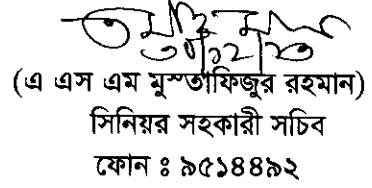 ৩০/১২/১৩
(এ এস এম মুস্তাফিজুর রহমান)
সিনিয়র সহকারী সচিব
ফোন ঃ ৯৫১৪৪৯২